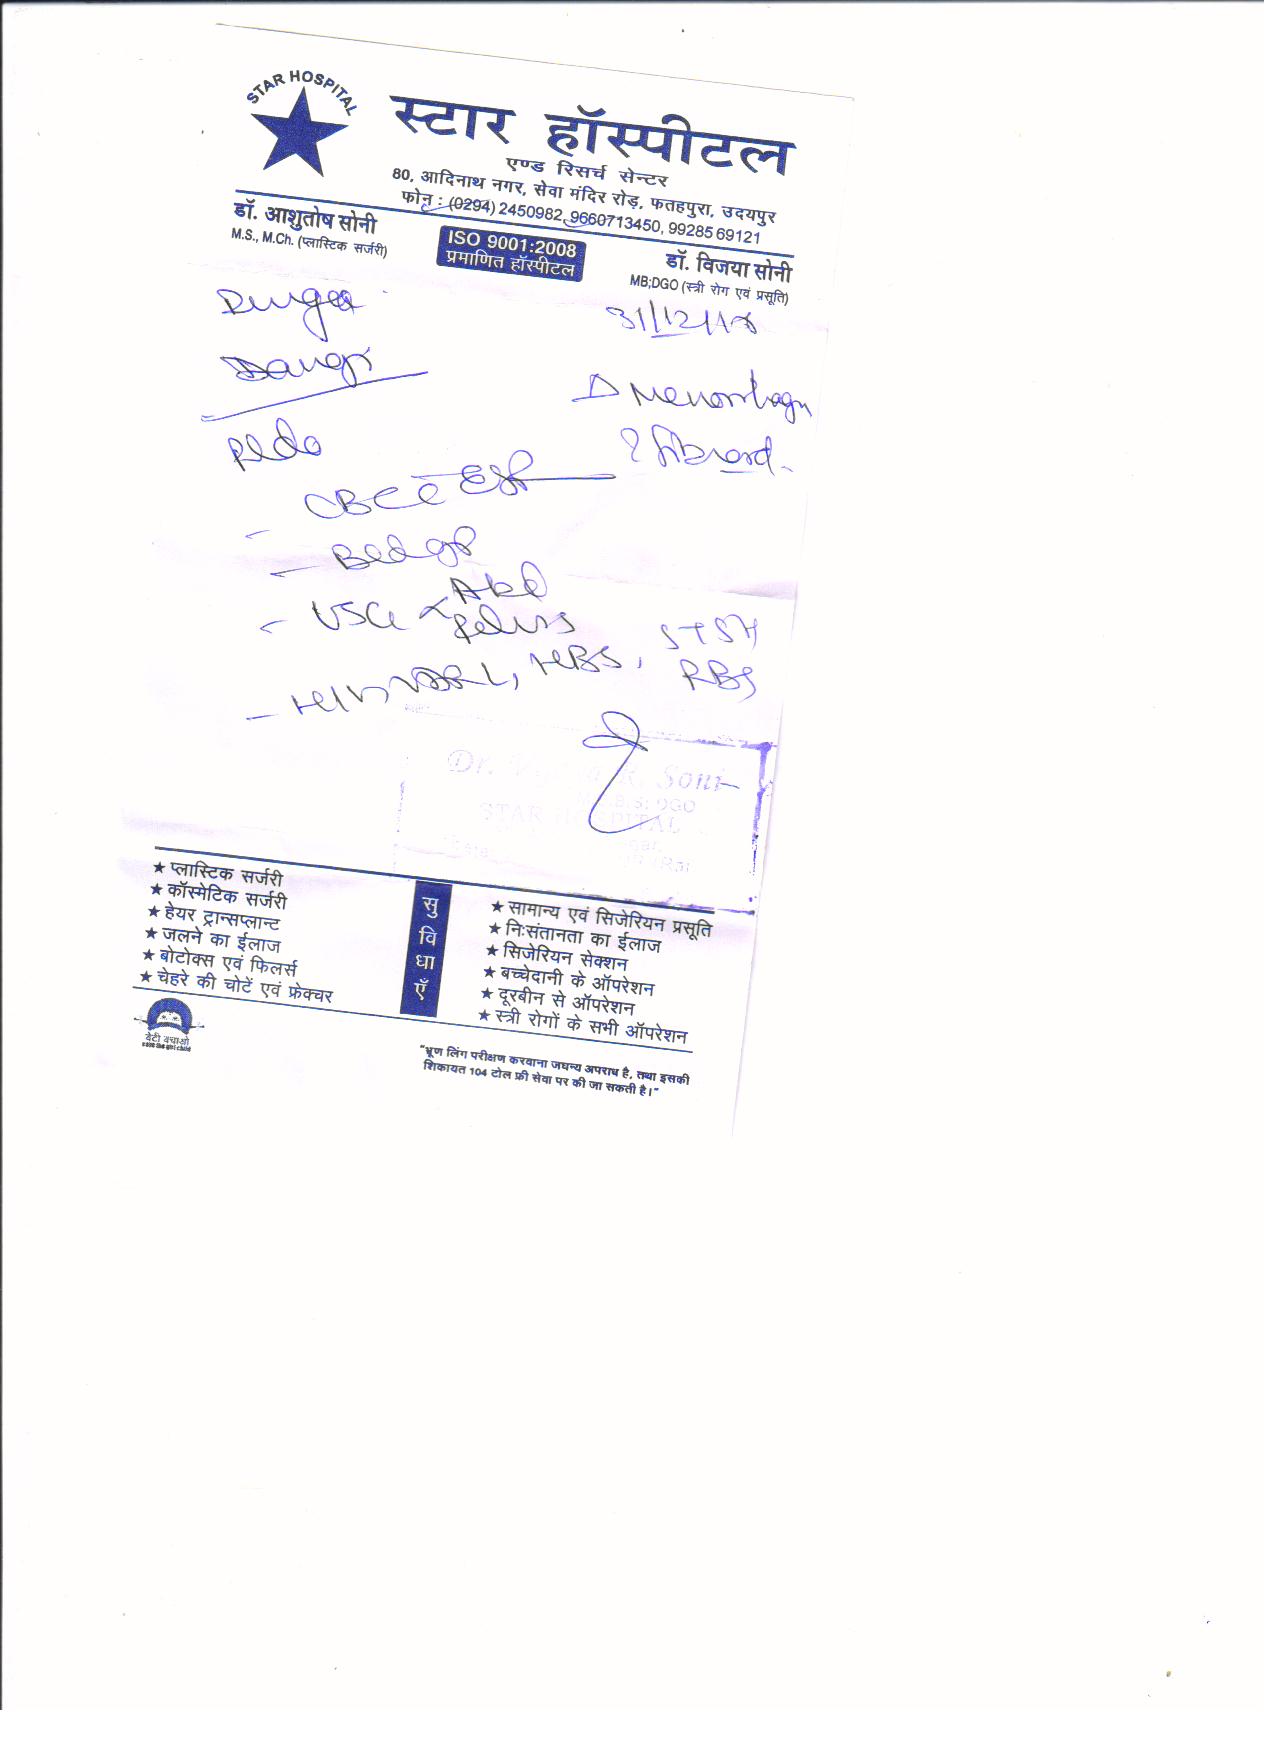 STAR HOSPITAL
स्टार हॉस्पीटल
एण्ड रिसर्च सेन्टर
80, आदिनाथ नगर, सेवा मंदिर रोड़, फतहपुरा, उदयपुर
फोन : (0294) 2450982, 9660713450, 99285 69121
डॉ. आशुतोष सोनी
M.S., M.Ch. (प्लास्टिक सर्जरी)
ISO 9001:2008
प्रमाणित हॉस्पीटल
डॉ. विजया सोनी
MB;DGO (स्त्री रोग एवं प्रसूति)
Durga
Dangi
31/12/18
Δ Menorrhagia
? fibroid
Pl do
- CBC c̄ ESR
- Bld gp
- USG < Abd
Pelvis
- HIV, VDRL, HBS, STSH
RBS
Dr. Soni
DGO
STAR HOSPITAL
★ प्लास्टिक सर्जरी
★ कॉस्मेटिक सर्जरी
★ हेयर ट्रान्सप्लान्ट
★ जलने का ईलाज
★ बोटोक्स एवं फिलर्स
★ चेहरे की चोटें एवं फ्रेक्चर
सुविधाएँ
★ सामान्य एवं सिजेरियन प्रसूति
★ निःसंतानता का ईलाज
★ सिजेरियन सेक्शन
★ बच्चेदानी के ऑपरेशन
★ दूरबीन से ऑपरेशन
★ स्त्री रोगों के सभी ऑपरेशन
बेटी बचाओ
save the girl child
"भ्रूण लिंग परीक्षण करवाना जघन्य अपराध है, तथा इसकी
शिकायत 104 टोल फ्री सेवा पर की जा सकती है।"